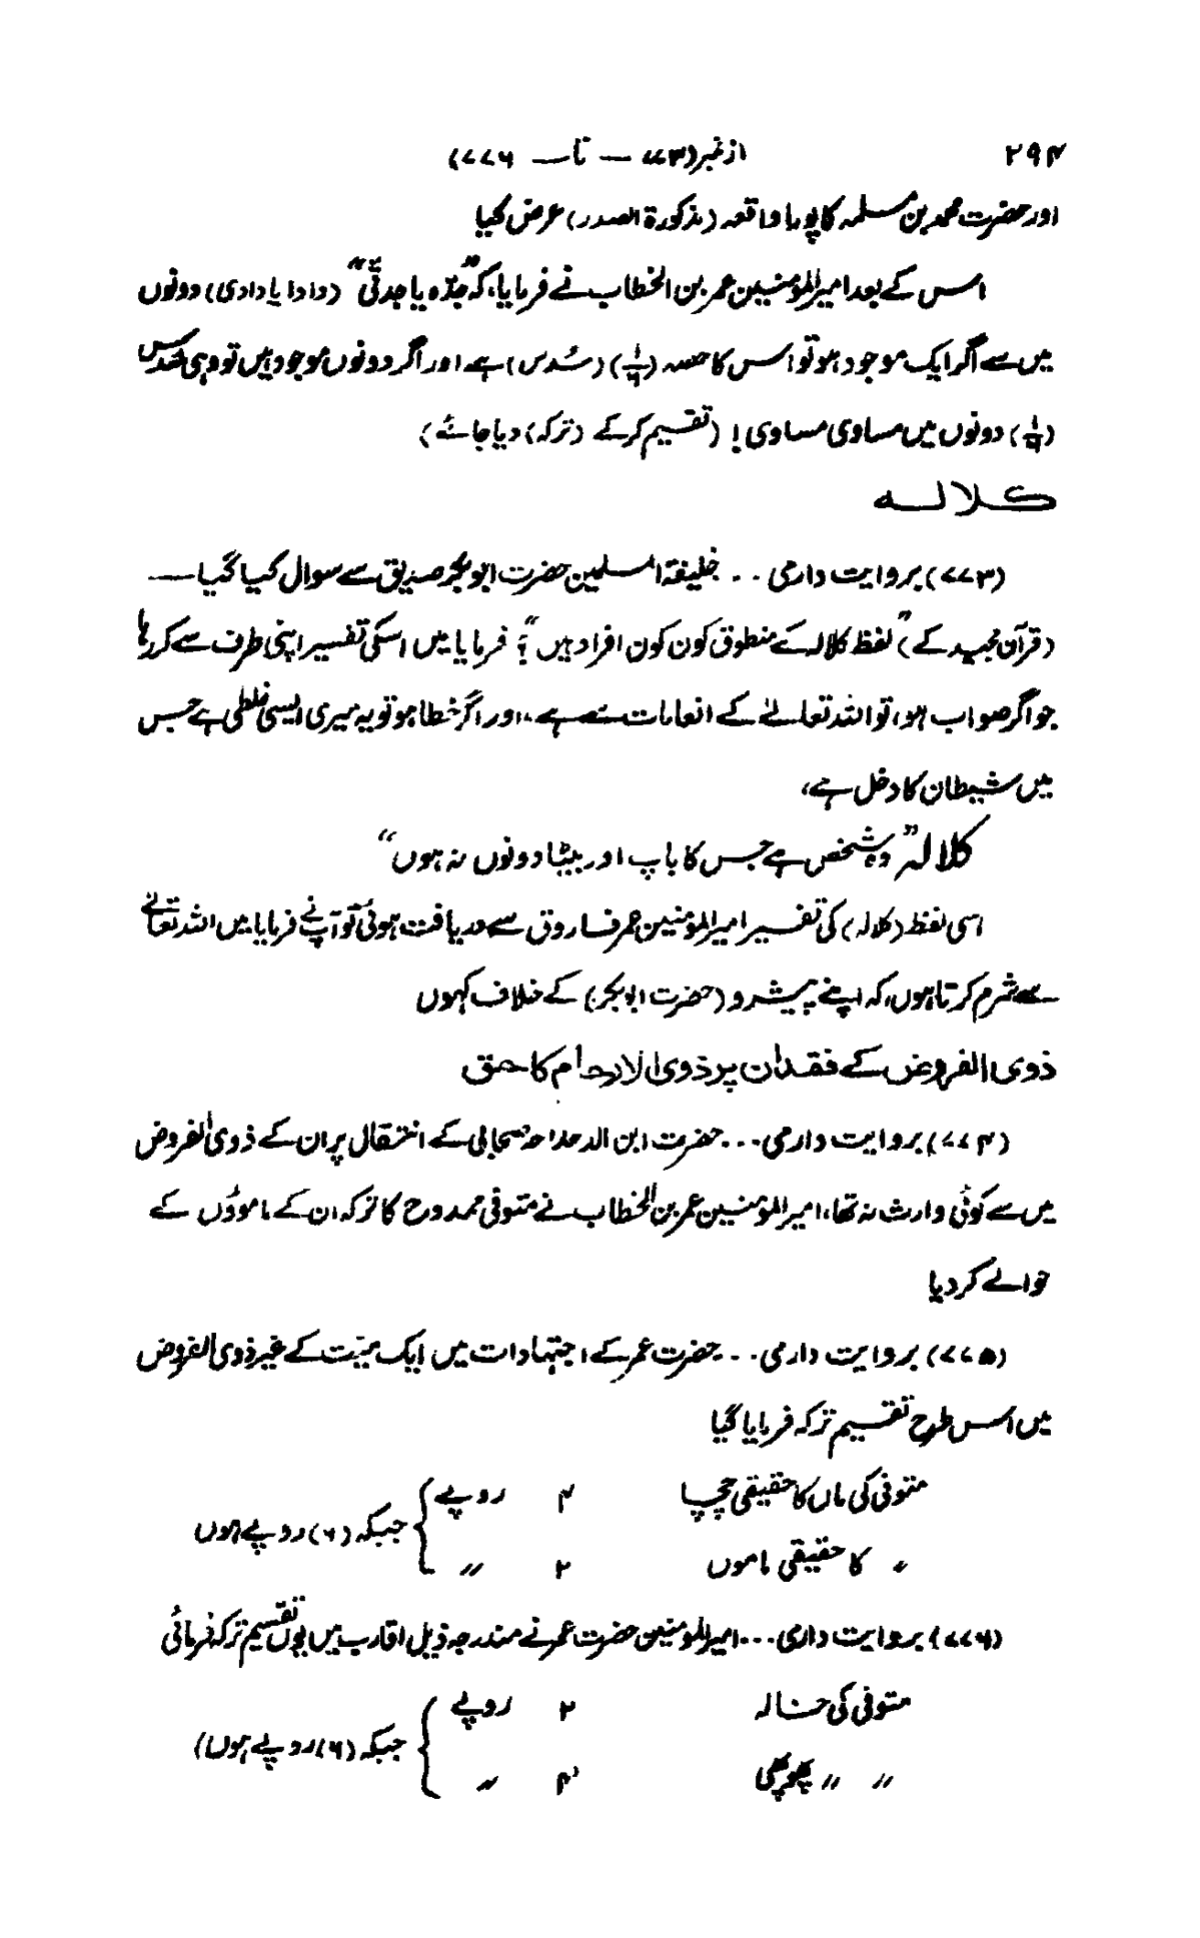 ۲۹۴ از نمبر (۷۷۳ — تا — ۷۷۶)
اور حضرت محمد بن مسلمہ کا پورا واقعہ (مذکورۃ الصدر) عرض کیا
اس کے بعد امیر المؤمنین عمر بن الخطاب نے فرمایا، کہ ”جدّہ یا جدتی“ (دادا یا دادی) دونوں
میں سے اگر ایک موجود ہو تو اس کا حصہ (۱/۶) (سُدس) ہے اور اگر دونوں موجود ہیں تو وہی سُدس
(۱/۶) دونوں میں مساوی مساوی! (تقسیم کر کے (ترکہ) دیا جائے)
کلالہ
(۷۷۳) بروایت دارمی . . خلیفۃ المسلمین حضرت ابوبکر صدیق سے سوال کیا گیا —
(قرآن مجید کے) ”لفظ کلالہ کے منطوق کون کون افراد ہیں“؟ فرمایا میں اسکی تفسیر اپنی طرف سے کر رہا
جو اگر صواب ہو، تو اللہ تعالےٰ کے انعامات سے ہے، اور اگر خطا ہو تو یہ میری ایسی غلطی ہے جس
میں شیطان کا دخل ہے،
کلالہ ”وہ شخص ہے جس کا باپ اور بیٹا دونوں نہ ہوں“
اسی لفظ (کلالہ) کی تفسیر امیر المؤمنین عمر فاروق سے دریافت ہوئی تو آپ نے فرمایا میں اللہ تعالےٰ
سے شرم کرتا ہوں، کہ اپنے پیشرو (حضرت ابوبکر) کے خلاف کہوں
ذوی الفروض کے فقدان پر ذوی الارحام کا حق
(۷۷۴) بروایت دارمی . . . حضرت ابن الدحداحہ صحابی کے انتقال پر ان کے ذوی الفروض
میں سے کوئی وارث نہ تھا، امیر المؤمنین عمر بن الخطاب نے متوفی ممدوح کا ترکہ ان کے ماموؤں کے
حوالے کر دیا
(۷۷۵) بروایت دارمی . . . حضرت عمر کے اجتہادات میں ایک میّت کے غیر ذوی الفروض
میں اس طرح تقسیم ترکہ فرمایا گیا
متوفی کی ماں کا حقیقی چچا ۴ روپے } جبکہ (۶) روپے ہوں
〃 کا حقیقی ماموں ۲ 〃
(۷۷۶) بروایت دارمی . . . امیر المؤمنین حضرت عمر نے مندرجہ ذیل اقارب میں یوں تقسیم ترکہ فرمائی
متوفی کی خالہ ۲ روپے } جبکہ (۶) روپے ہوں)
〃 〃 پھوپھی ۴ 〃